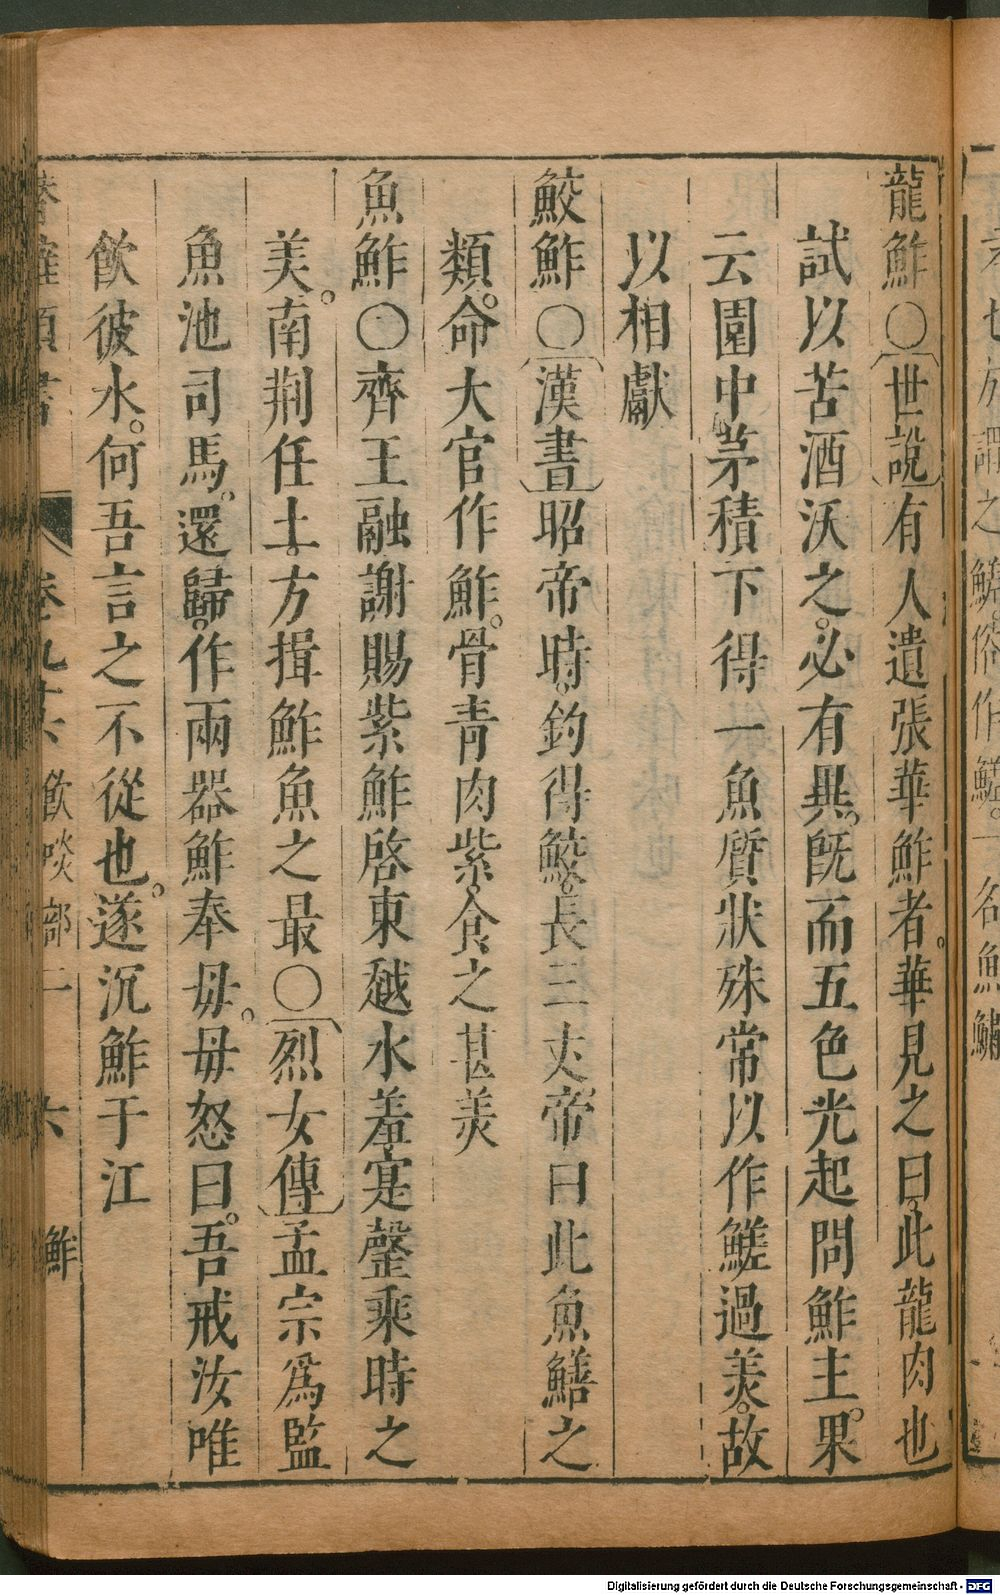 龍鮓○世說有人遺張華鮓者。華見之曰。此龍肉也
試以苦酒沃之。必有異。旣而五色光起問鮓主。果
云園中茅積下得一魚質狀殊常以作鮺過美。故
以相獻
鮫鮓○漢書昭帝時。釣得鮫。長三丈帝曰此魚鱔之
類。命大官作鮓。骨青肉紫。食之甚美
魚鮓○齊王融謝賜紫鮓啓東越水羞寔罄乘時之
美。南荆任土。方揖鮓魚之最○烈女傳孟宗爲監
魚池司馬。還歸。作兩器鮓奉毋。毋怒曰。吾戒汝唯
飲彼水。何吾言之不從也。遂沉鮓于江
卷九十六 飲啖部二 六 鮓
俗作鮺。一名魚
Digitalisierung gefördert durch die Deutsche Forschungsgemeinschaft - DFG